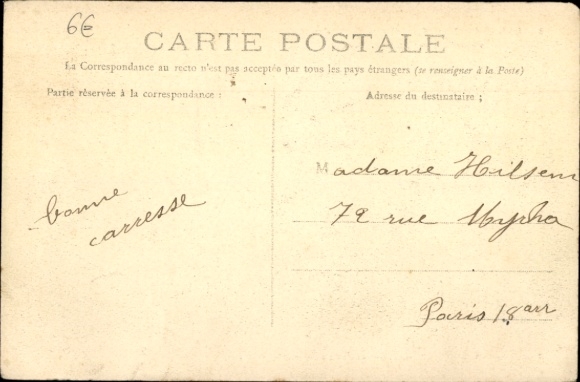 6€
CARTE POSTALE
La Correspondance au recto n'est pas acceptée par tous les pays étrangers (se renseigner à la Poste)
Partie réservée à la correspondance :
Adresse du destinataire ;
bonne
carresse
Madame Hilsem
72 rue Myrha
Paris 18 arr